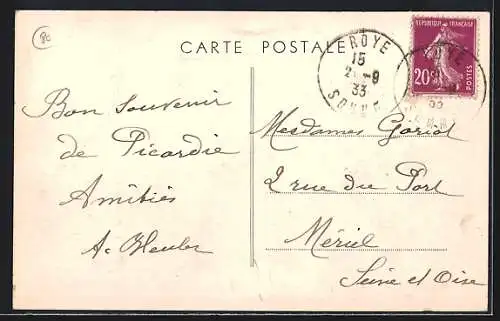 CARTE POSTALE
ROYE
15
2 -9
33
SOMME
REPUBLIQUE FRANÇAISE
20c
POSTES
Bon Souvenir
de Picardie
Amitiés
Mesdames Goriot
2 rue du Port
Mériel
Seine et Oise